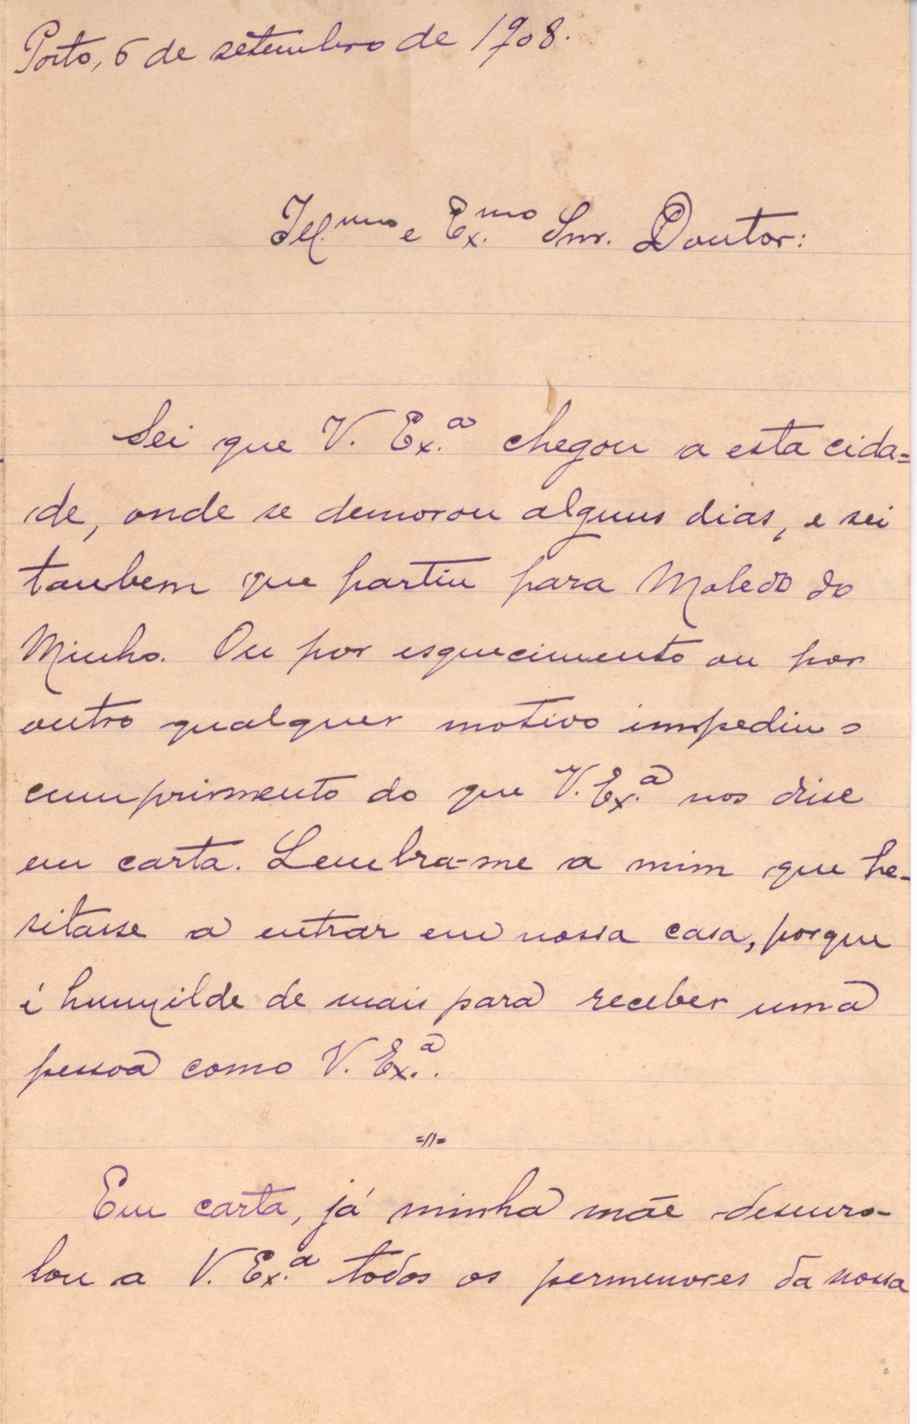 Porto, 6 de setembro de 1908.
Ill.mo e Ex.mo Snr. Doutor:
Sei que V. Ex.ª chegou a esta cida=
de, onde se demorou alguns dias, e sei
tambem que partiu para Moledo do
Minho. Ou por esquecimento ou por
outro qualquer motivo impediu o
cumprimento do que V. Ex.ª nos disse
em carta. Lembra-me a mim que he-
sitasse a entrar em nossa casa, porque
é humilde de mais para receber uma
pessoa como V. Ex.ª.
=//=
Em carta, já minha mãe desenro-
lou a V. Ex.ª todos os permenores da nossa